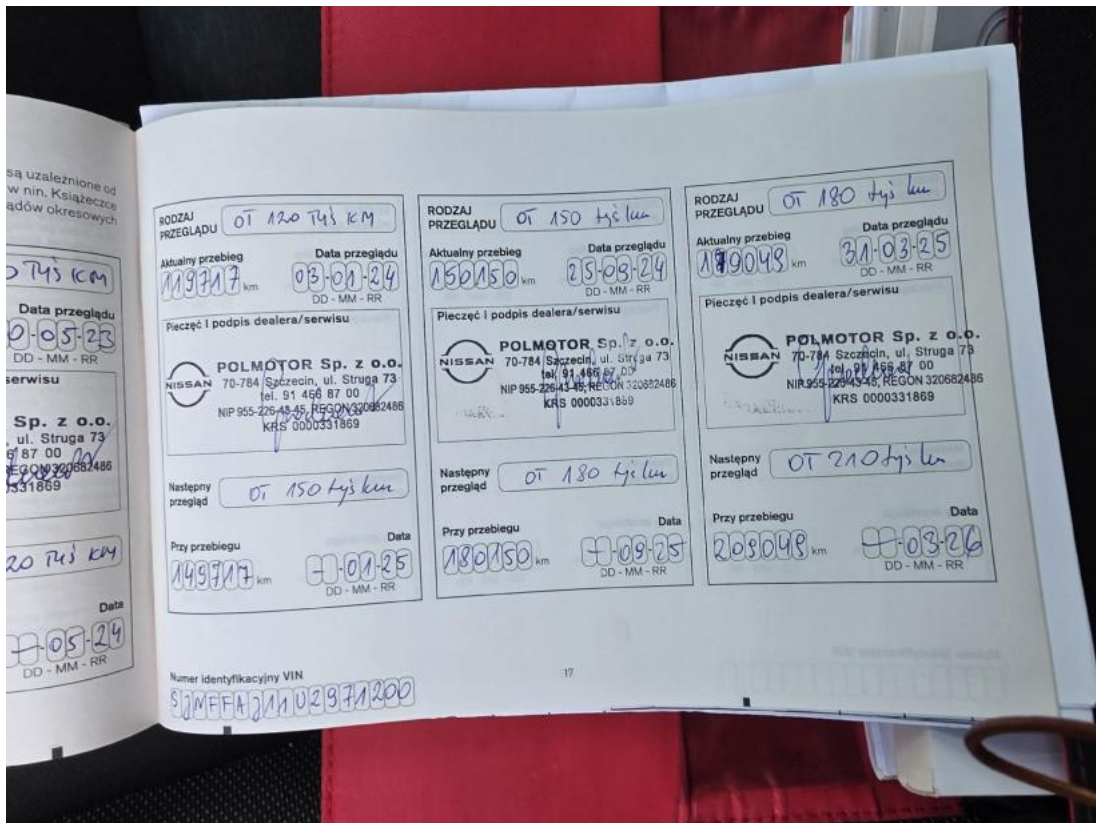 są uzależnione od
w nin. Książeczce
ądów okresowych
TYŚ KM
Data przeglądu
0-05-23
DD - MM - RR
serwisu
Sp. z o.o.
ul. Struga 73
6 87 00
REGON 320682486
0331869
20 TYŚ KM
Data
-05-24
DD - MM - RR
RODZAJ
PRZEGLĄDU
OT 120 TYŚ KM
Aktualny przebieg
Data przeglądu
119717 km
03-01-24
DD - MM - RR
Pieczęć i podpis dealera/serwisu
NISSAN
POLMOTOR Sp. z o.o.
70-784 Szczecin, ul. Struga 73
tel. 91 466 87 00
NIP 955-226-43-45, REGON 320682486
KRS 0000331869
Następny
przegląd
OT 150 tyś km
Przy przebiegu
Data
149717 km
-01-25
DD - MM - RR
RODZAJ
PRZEGLĄDU
OT 150 tyś km
Aktualny przebieg
Data przeglądu
150150 km
25-09-24
DD - MM - RR
Pieczęć i podpis dealera/serwisu
NISSAN
POLMOTOR Sp. z o.o.
70-784 Szczecin, ul. Struga 73
tel. 91 466 87 00
NIP 955-226-43-45, REGON 320682486
KRS 0000331869
Następny
przegląd
OT 180 tyś km
Przy przebiegu
Data
180150 km
-09-25
DD - MM - RR
RODZAJ
PRZEGLĄDU
OT 180 tyś km
Aktualny przebieg
Data przeglądu
179049 km
31-03-25
DD - MM - RR
Pieczęć i podpis dealera/serwisu
NISSAN
POLMOTOR Sp. z o.o.
70-784 Szczecin, ul. Struga 73
tel. 91 466 87 00
NIP 955-226-43-45, REGON 320682486
KRS 0000331869
Następny
przegląd
OT 210 tyś km
Przy przebiegu
Data
209049 km
-03-26
DD - MM - RR
Numer identyfikacyjny VIN
SJNFFAJ11U2971200
17